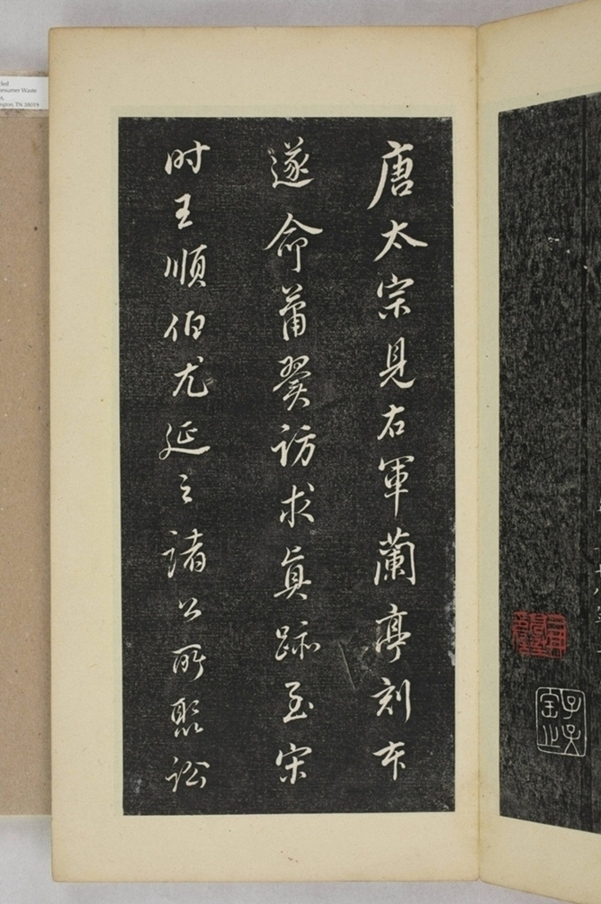 唐太宗見右軍蘭亭刻本
遂命蕭翼訪求真跡至宋
时王順伯尤延之諸公所聚訟
子孫
寶之
onsumer Waste
TN 38019